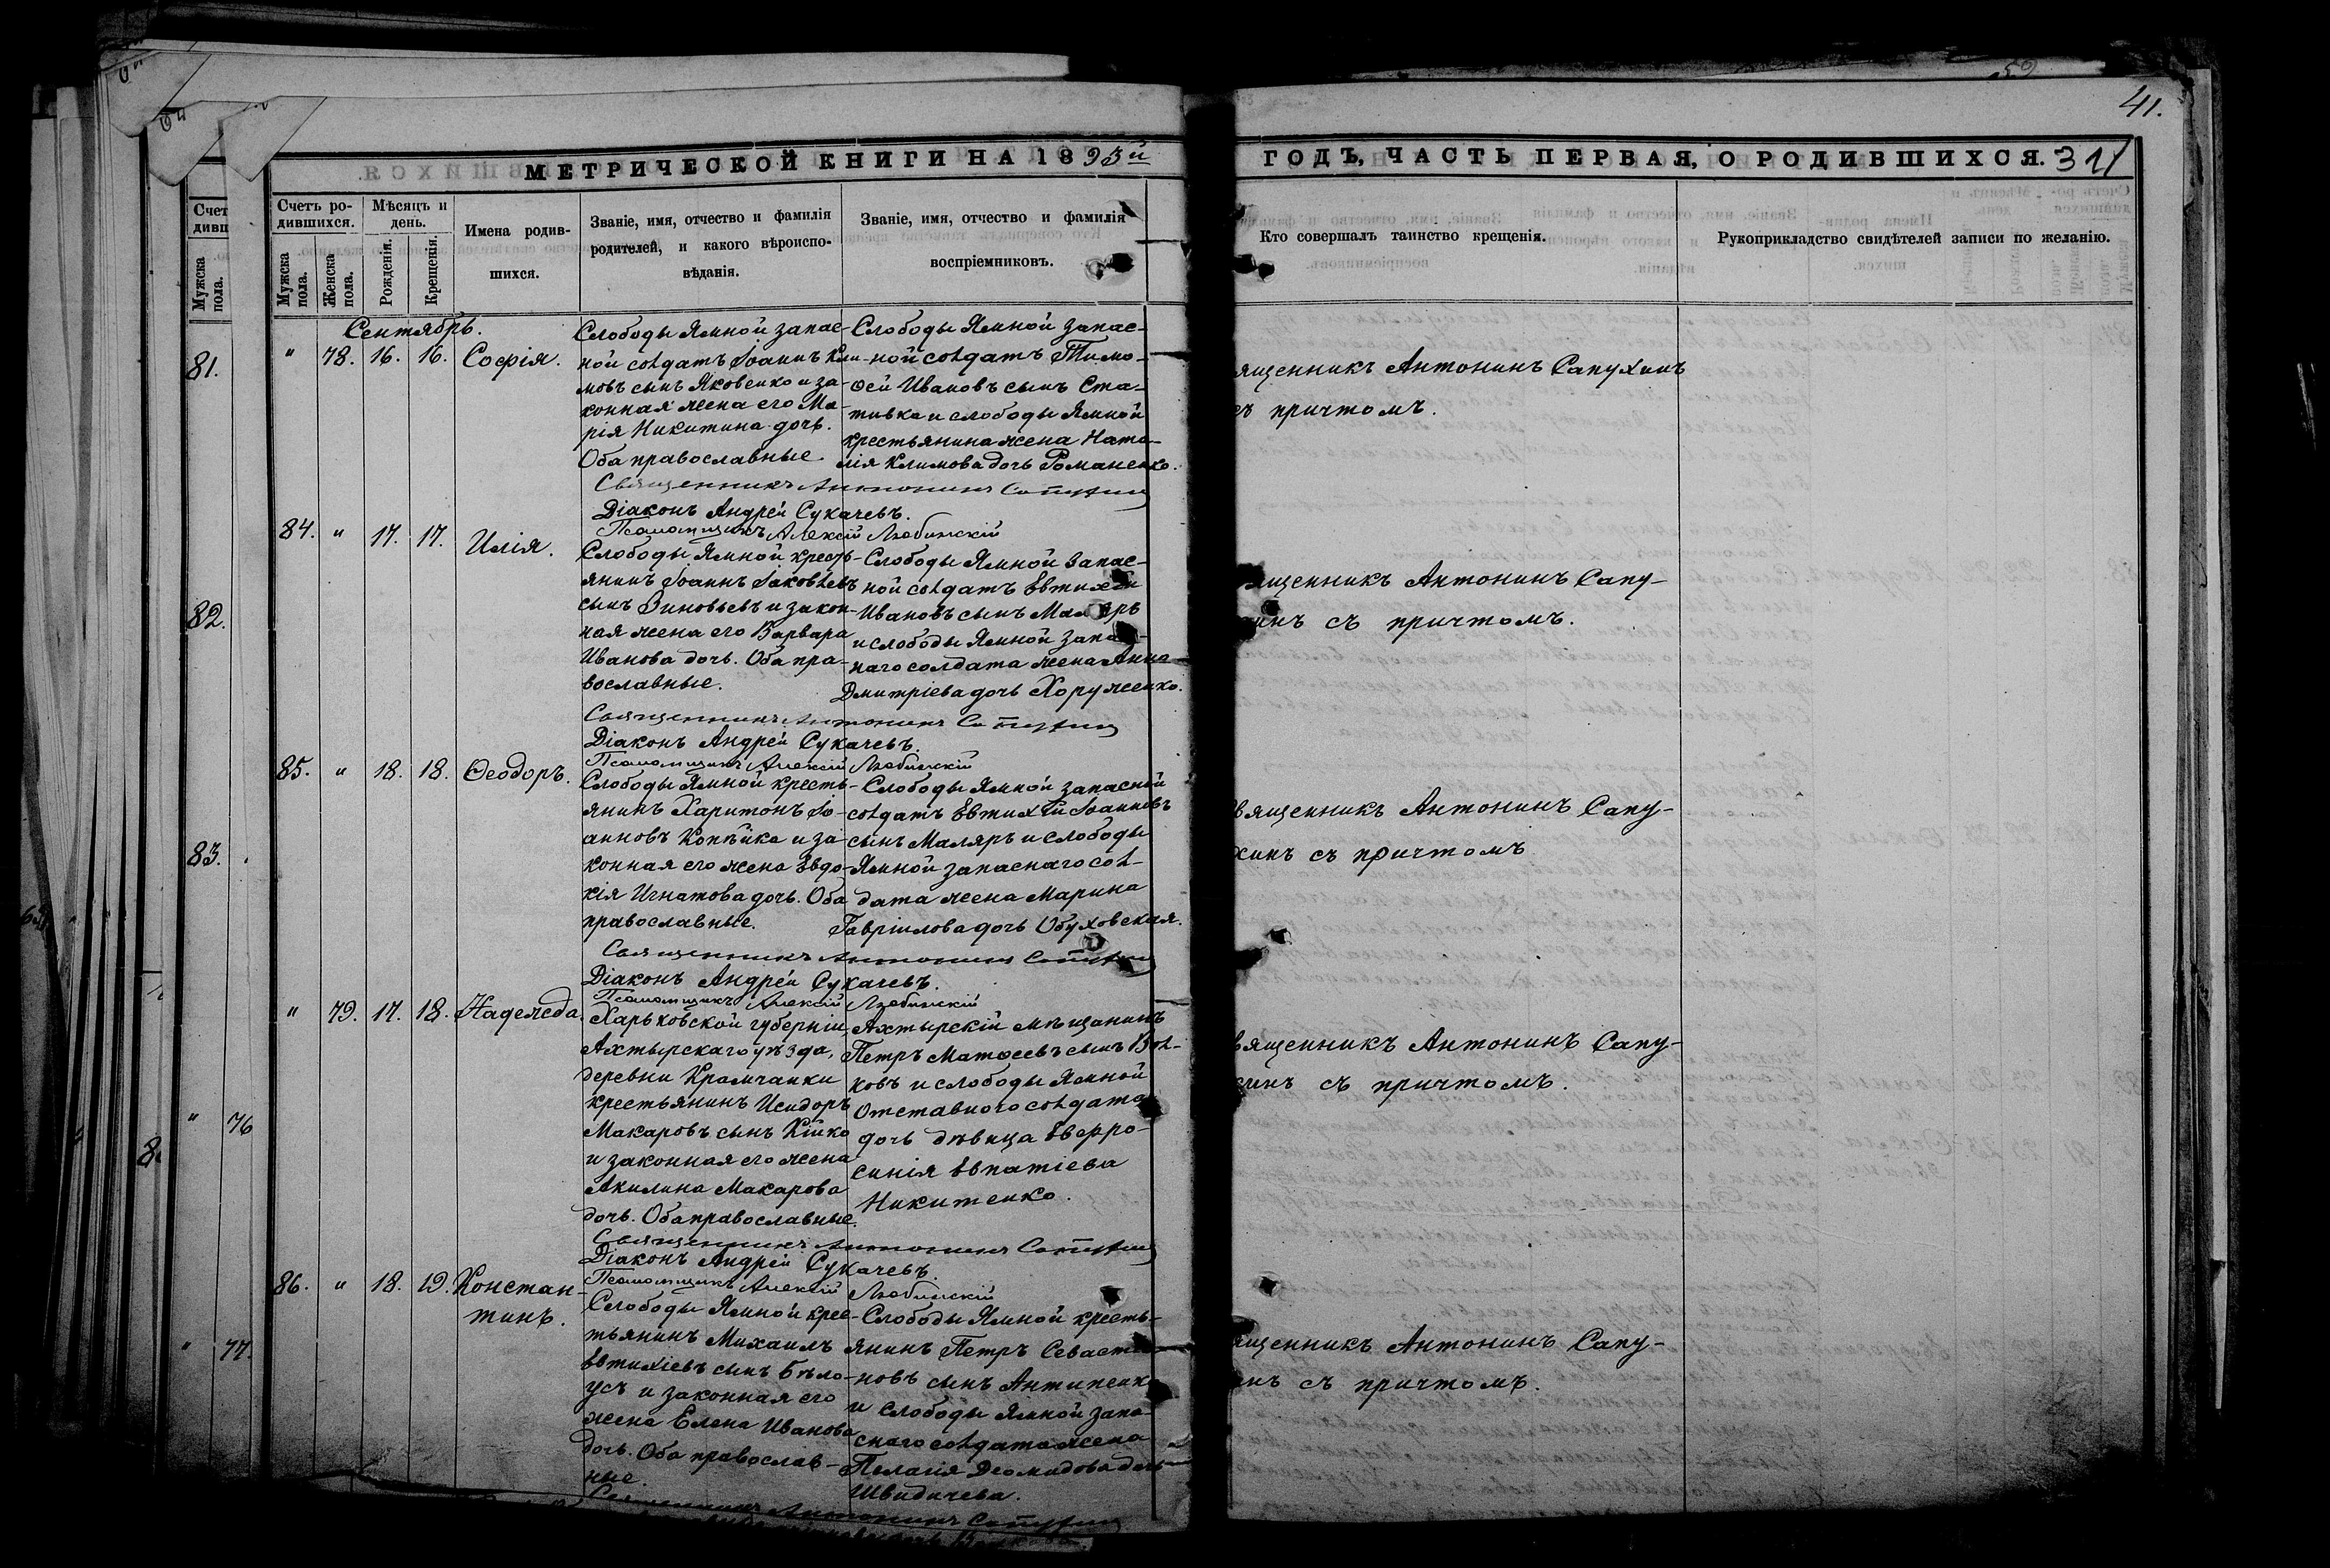 41.
МЕТРИЧЕСКОЙ КНИГИ НА 1893й
ГОДЪ, ЧАСТЬ ПЕРВАЯ, О РОДИВШИХСЯ.
Счетъ ро-
дившихся.
Мужска
пола.
Женска
пола.
Мѣсяцъ и
день.
Рожденія.
Крещенія.
Имена родив-
шихся.
Званіе, имя, отчество и фамилія
родителей, и какого вѣроиспо-
вѣданія.
Званіе, имя, отчество и фамилія
воспріемниковъ.
Кто совершалъ таинство крещенія.
Рукоприкладство свидѣтелей записи по желанію.
Сентябрь.
" 78. 16. 16. Софія.
Слободы Ямной запас-
ной солдатъ Іоаннъ Кли-
мовъ сынъ Яковенко и за-
конная жена его Ма-
рія Никитина дочь.
Оба православные.
Слободы Ямной запас-
ной солдатъ Тимо-
ѳей Ивановъ сынъ Ста-
тивка и слободы Ямной
крестьянина жена Ната-
лія Климова дочь Романенко.
ященникъ Антонинъ Сапухинъ
съ причтомъ.
Священникъ Антонинъ Сапухинъ
Діаконъ Андрей Сукачевъ.
Псаломщикъ Алексій Любинскій
84. " 17. 17. Илія.
Слободы Ямной кресть-
янинъ Іоаннъ Іаковлевъ
сынъ Зиновьевъ и закон-
ная жена его Варвара
Иванова дочь. Оба пра-
вославные.
Слободы Ямной запас-
ной солдатъ Евтихій
Ивановъ сынъ Маляръ
и слободы Ямной запас-
наго солдата жена Анна
Дмитріева дочь Хоруженко.
ященникъ Антонинъ Сапу-
хинъ съ причтомъ.
Священникъ Антонинъ Сапухинъ
Діаконъ Андрей Сукачевъ.
Псаломщикъ Алексій Любинскій
85. " 18. 18. Ѳеодоръ.
Слободы Ямной кресть-
янинъ Харитонъ Іо-
анновъ Копѣйка и за-
конная его жена Евдо-
кія Игнатова дочь. Оба
православные.
Слободы Ямной запасной
солдатъ Евтихій Іоанновъ
сынъ Маляръ и слободы
Ямной запаснаго сол-
дата жена Марина
Гавріилова дочь Обуховская.
вященникъ Антонинъ Сапу-
хинъ съ причтомъ
Священникъ Антонинъ Сапухинъ
Діаконъ Андрей Сукачевъ.
Псаломщикъ Алексій Любинскій
" 79. 17. 18. Надежда.
Харьковской губерніи,
Ахтырскаго уѣзда,
деревни Храмчанки
крестьянинъ Исидоръ
Макаровъ сынъ Кійко
и законная его жена
Акилина Макарова
дочь. Оба православные.
Ахтырскій мѣщанинъ
Петръ Матѳеевъ сынъ Вол-
ковъ и слободы Ямной
отставного солдата
дочь дѣвица Евфро-
синія Евпатіева
Никитенко.
вященникъ Антонинъ Сапу-
хинъ съ причтомъ.
Священникъ Антонинъ Сапухинъ
Діаконъ Андрей Сукачевъ
Псаломщикъ Алексій Любинскій
86. " 18. 19. Констан-
тинъ.
Слободы Ямной крес-
тьянинъ Михаилъ
Евтихіевъ сынъ Бѣло-
усъ и законная его
жена Елена Иванова
дочь. Оба православ-
ные.
Слободы Ямной кресть-
янинъ Петръ Севасть-
новъ сынъ Антипенко
и слободы Ямной запа-
снаго солдата жена
Пелагія Деомидова дочь
Швидичева.
ященникъ Антонинъ Сапу-
инъ съ причтомъ.
Священникъ Антонинъ Сапухинъ
81.
82.
83.
" 76
" 77.